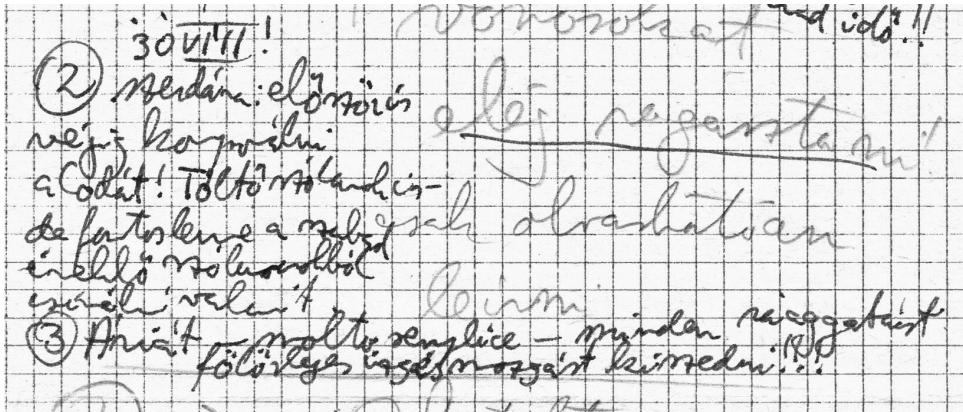 jó VIII!
② szerdára: először is
végig komponálni
a Codát! Töltő szólamok is –
de fontos lenne a szabad
éneklő szólamokból
csinálni valamit
③ Áriát – molto semplice – minden ráaggatást
fölösleges izgés mozgást kiszedni!!!
vörösöket
elég ragasztani!
csak olvashatóan
leírni
idő!!